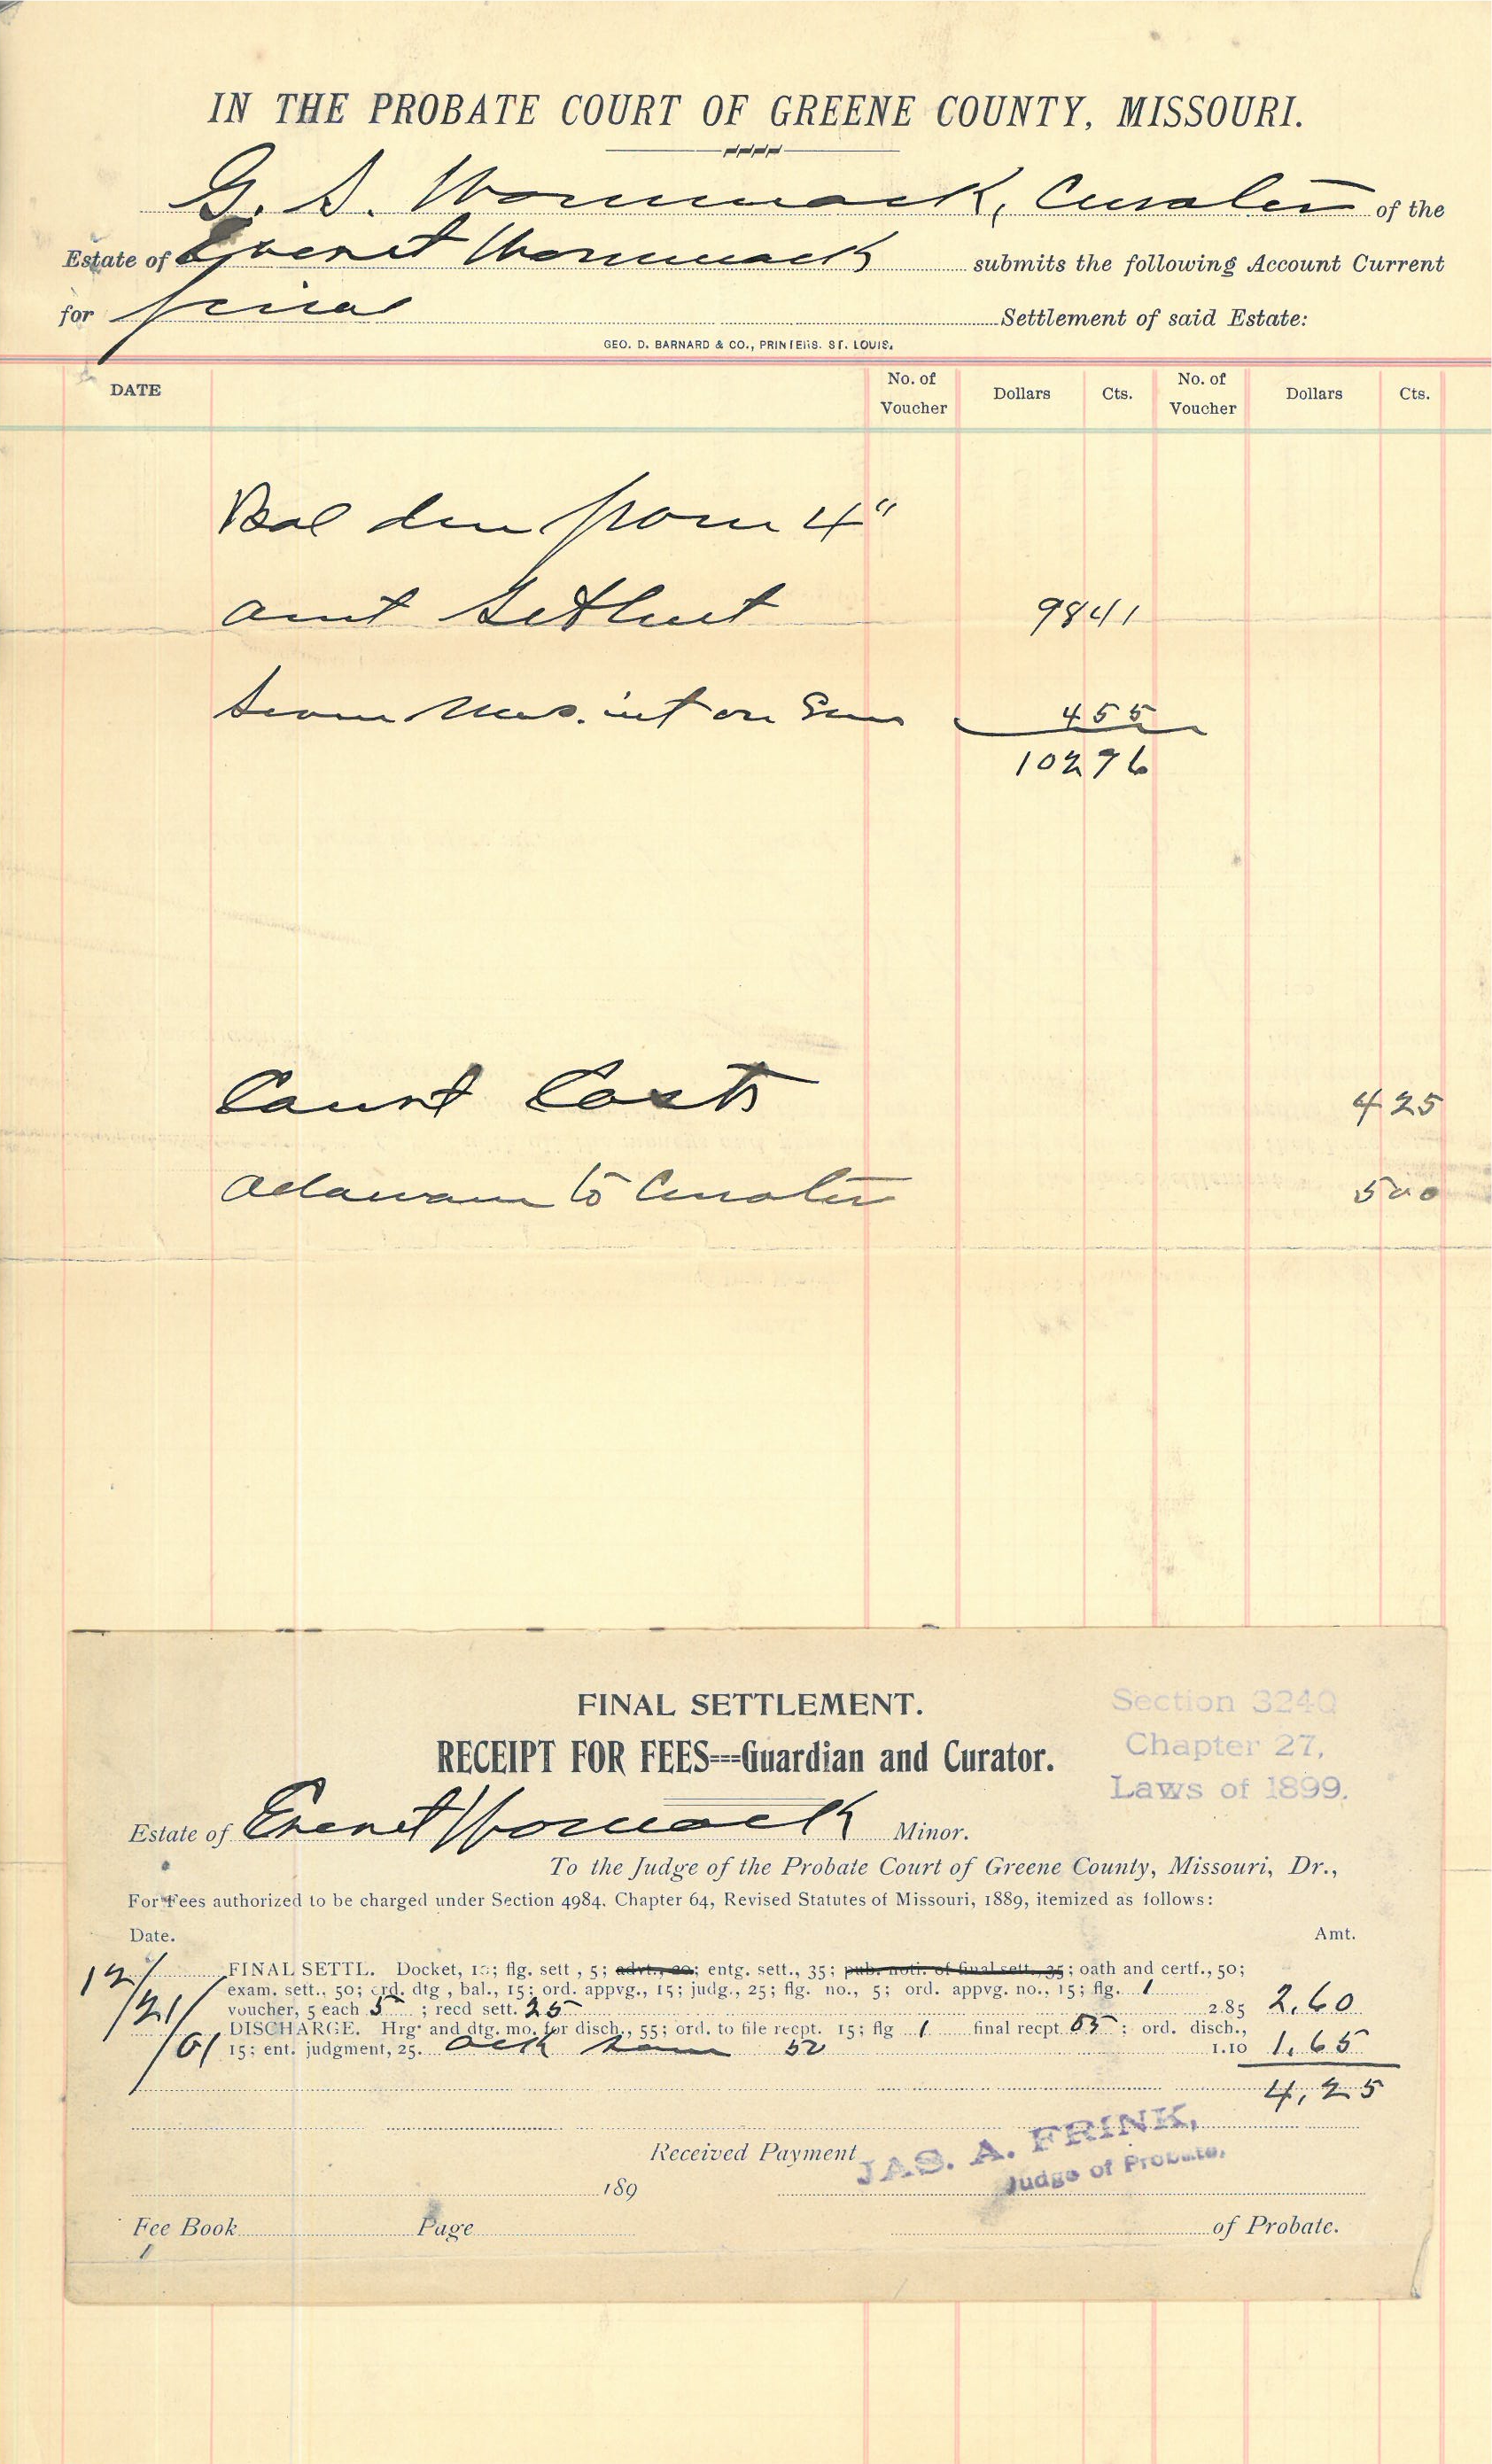 IN THE PROBATE COURT OF GREENE COUNTY, MISSOURI.
G. S. Wommack, Curator of the
Estate of Everet Wommack submits the following Account Current
for final Settlement of said Estate:
GEO. D. BARNARD & CO., PRINTERS. ST. LOUIS.
DATE No. of Voucher Dollars Cts. No. of Voucher Dollars Cts.
Bal due from 4"
amt Settlmt 9841
Seven Mos. int on Same 455
10296
Court Costs 425
to Curator 500
FINAL SETTLEMENT.
Section 3240
RECEIPT FOR FEES---Guardian and Curator.
Chapter 27,
Laws of 1899.
Estate of Everet Wommack Minor.
To the Judge of the Probate Court of Greene County, Missouri, Dr.,
For Fees authorized to be charged under Section 4984, Chapter 64, Revised Statutes of Missouri, 1889, itemized as follows:
Date. Amt.
12/21/01
FINAL SETTL. Docket, 10; flg. sett, 5; advt., 20; entg. sett., 35; pub. noti. of final sett., 35; oath and certf., 50;
exam. sett., 50; ord. dtg, bal., 15; ord. appvg., 15; judg., 25; flg. no., 5; ord. appvg. no., 15; flg. 1
voucher, 5 each 5; recd sett. 25 2.85 2.60
DISCHARGE. Hrg. and dtg. mo. for disch., 55; ord. to file recpt. 15; flg 1 final recpt 05; ord. disch.,
15; ent. judgment, 25. ack same 50 1.10 1.65
4.25
Received Payment
JAS. A. FRINK,
Judge of Probate,
189
Fee Book Page of Probate.